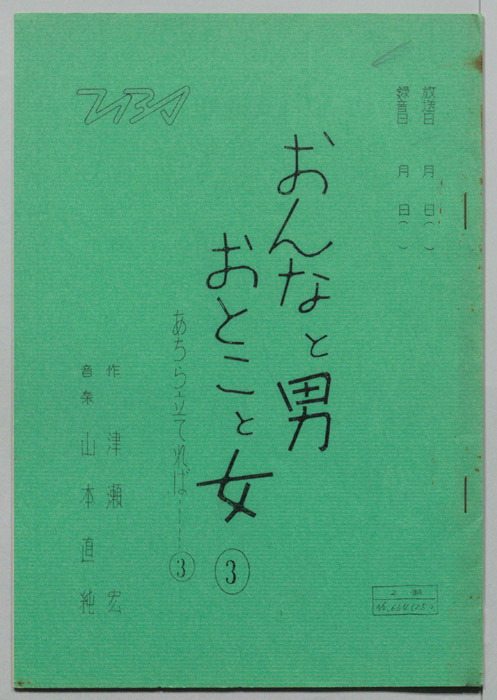 放送日 月 日( )
録音日 月 日( )
おんなと男
おとこと女 ③
あちら立てれば…… ③
作 津瀬 宏
音楽 山本直純
TBS